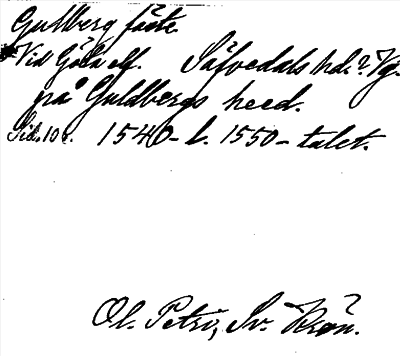 Gullberg fäste
Vid Göta elf. Säfvedals hd.? Vg.
på Guldbergs heed.
Sid. 106. 1540- l. 1550- talet.
Ol. Petri, Sv. Krön.